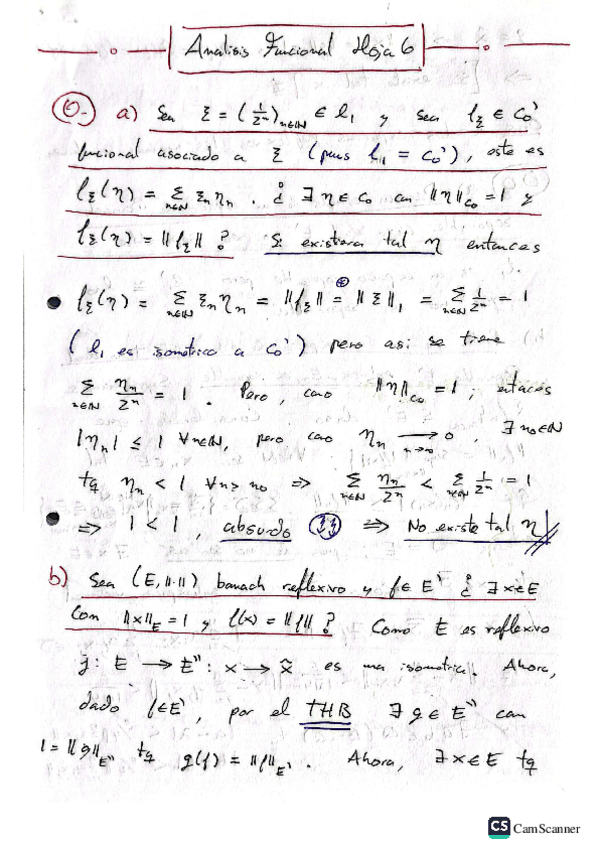 Analisis Funcional Hoja 6
a) Sea ξ = (1/2ⁿ)_{n∈ℕ} ∈ ℓ₁ y sea f_ξ ∈ c₀'
funcional asociado a ξ (pues ℓ₁ = c₀'), este es
f_ξ(η) = Σ_{n∈ℕ} ξₙ ηₙ . ¿ ∃ η ∈ c₀ con ‖η‖_{c₀} = 1 y
f_ξ(η) = ‖f_ξ‖ ? Si existiera tal η entonces
• f_ξ(η) = Σ_{n∈ℕ} ξₙ ηₙ = ‖f_ξ‖ = ‖ξ‖₁ = Σ_{n∈ℕ} 1/2ⁿ = 1
(ℓ₁ es isométrico a c₀') pero asi se tiene
Σ_{n∈ℕ} ηₙ/2ⁿ = 1 . Pero, como ‖η‖_{c₀} = 1, entonces
|ηₙ| ≤ 1 ∀n∈ℕ, pero como ηₙ →_{n→∞} 0 , ∃ n₀∈ℕ
tq ηₙ < 1 ∀n ≥ n₀ ⇒ Σ_{n∈ℕ} ηₙ/2ⁿ < Σ_{n∈ℕ} 1/2ⁿ = 1
• ⇒ 1 < 1 , absurdo ⇒ No existe tal η
b) Sea (E, ‖·‖) banach reflexivo y f ∈ E' ¿ ∃ x ∈ E
Con ‖x‖_E = 1 y f(x) = ‖f‖ ? Como E es reflexivo
j: E → E'' : x → x̂ es una isometria. Ahora,
dado f∈E', por el THB ∃ g ∈ E'' con
1 = ‖g‖_{E''} tq g(f) = ‖f‖_{E'} . Ahora, ∃ x ∈ E tq
CS CamScanner